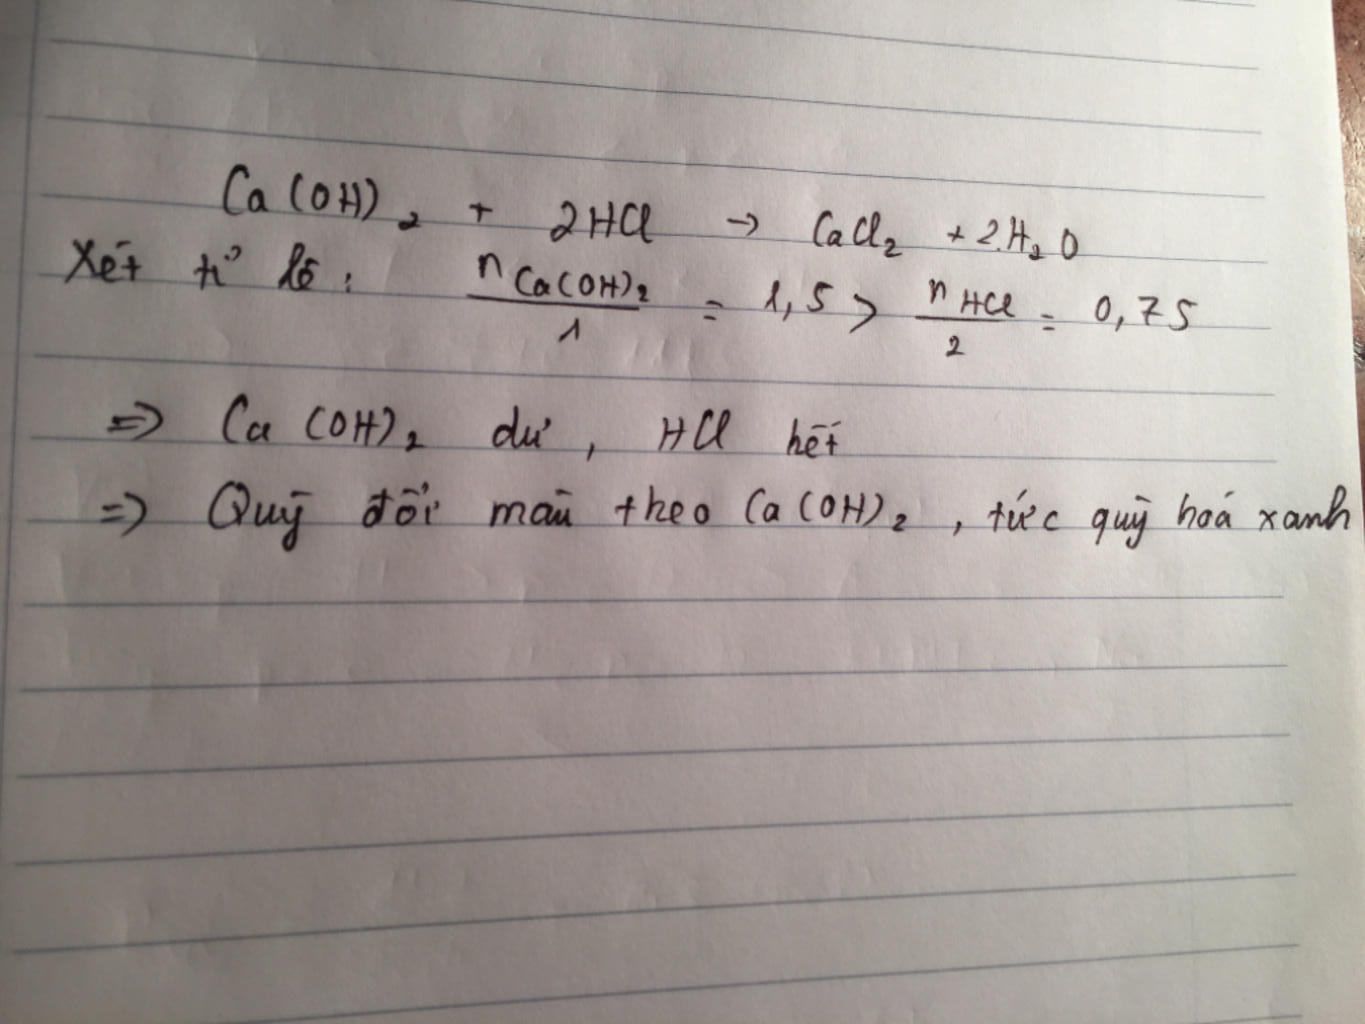 Ca(OH)₂ + 2HCl → CaCl₂ + 2.H₂O
Xét tỉ lệ : nCa(OH)₂/1 = 1,5 > nHCl/2 = 0,75
=> Ca(OH)₂ dư, HCl hết
=> Quỳ đổi màu theo Ca(OH)₂, tức quỳ hoá xanh